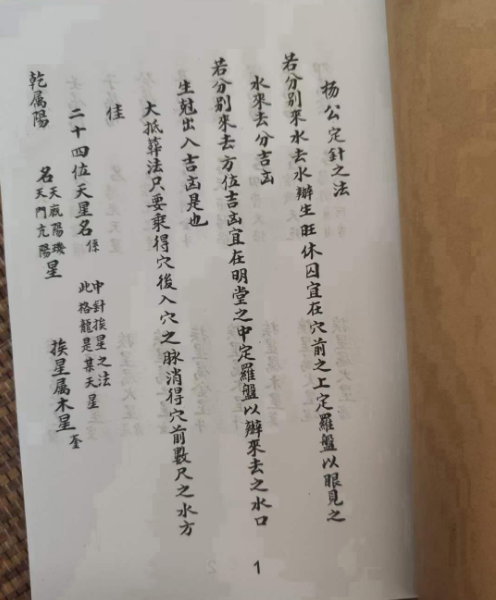 杨公定針之法
若分别來水去水辦生旺休囚宜在穴前之上定羅盤以眼見之
水來去分吉凶
若分别來去方位吉凶宜在明堂之中定羅盤以辦來去之水口
生尅出入吉凶是也
大抵葬法只要乘得穴後入穴之脉消得穴前數尺之水方
佳
二十四位天星名係 中針挨星之法 此格龍是某天星
乾属陽 名 天廐陽璣 天門亢陽 星 挨星属木星
1